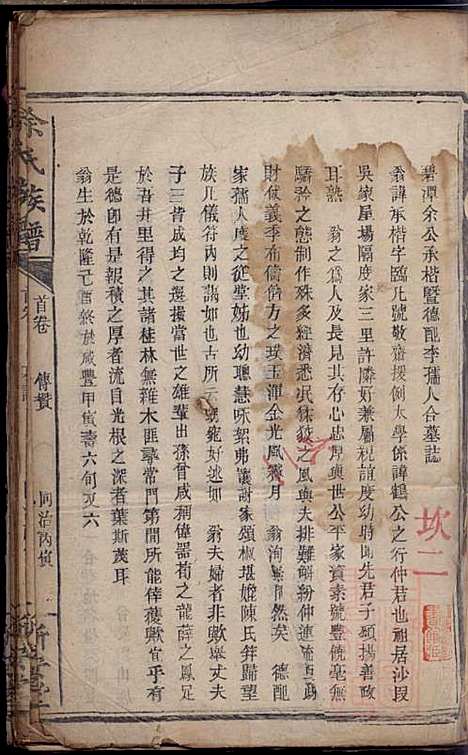 碧潭余公承楷暨德配李孺人合墓誌
翁諱承楷字臨凡號敬齋援例太學係諱鶴公之行仲君也祖居沙段
吳家屋場隔度家三里許隣好兼屬視誼度幼時聞先君子頌揚善政
耳熟 翁之為人及長見其存心忠厚與世公平家資素號豐饒毫無
驕矜之態制作殊多經濟悉泯狡之風與夫排難觧紛仲連
財仗義季布倫儕方之璞玉渾金光風霽月 翁洵然矣 德配
李孺人度之從堂姊也幼聰慧咏絮弗讓謝家頌椒堪媲陳氏笄歸望
族凡儀符內則藹如也古所云雍雍宛好逑如 翁夫婦者非歟舉丈夫
子三皆成均之選擢當世之雄輩出孫曾咸稱偉器荀之龍薛之鳳足
於吾井里得之其諸桂林無雜木匪尋常門第間所能倖獲歟宜乎有
是德即有是報積之厚者流自光根之深者葉斯茂耳
翁生於乾隆己酉終於咸豐甲寅壽六旬又六
坎二
余氏族譜
首卷
傳贊
同治丙寅
新